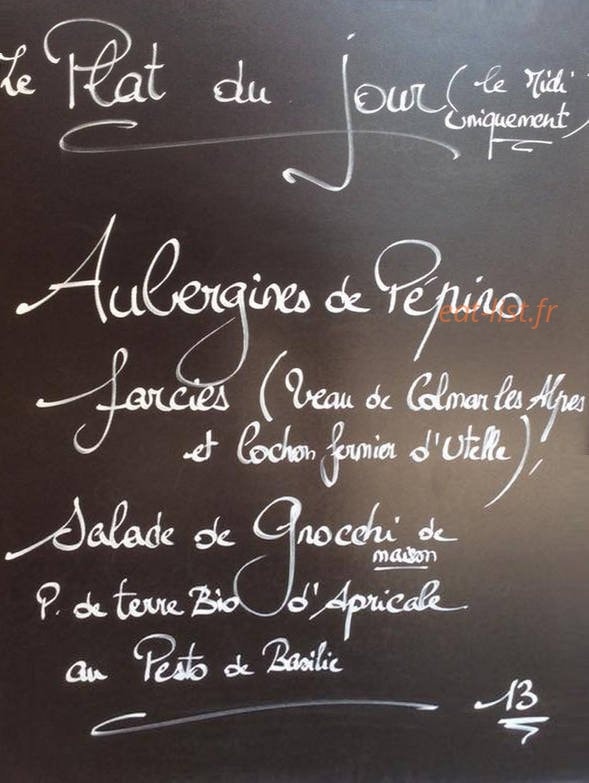 Le Plat du jour (le Midi
uniquement)
Aubergines de Pépino
eat-list.fr
farcies (Veau de Colmar les Alpes
et Cochon fermier d'Utelle),
Salade de Gnocchi de
maison
P. de terre Bio d'Apricale
au Pesto de Basilic
13